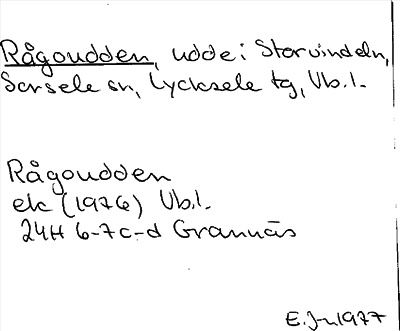 Rågoudden, udde i Storvindeln,
Sorsele sn, Lycksele tg, Vb.l.
Rågoudden
ek (1976) Vb.l.
24H 6-7c-d Grannäs
E.J-n 1977